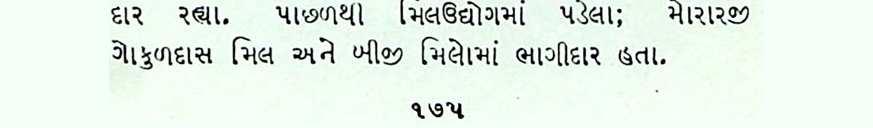 દાર રહ્યા. પાછળથી મિલઉદ્યોગમાં પડેલા; મોરારજી
ગોકુળદાસ મિલ અને બીજી મિલોમાં ભાગીદાર હતા.
૧૭૫